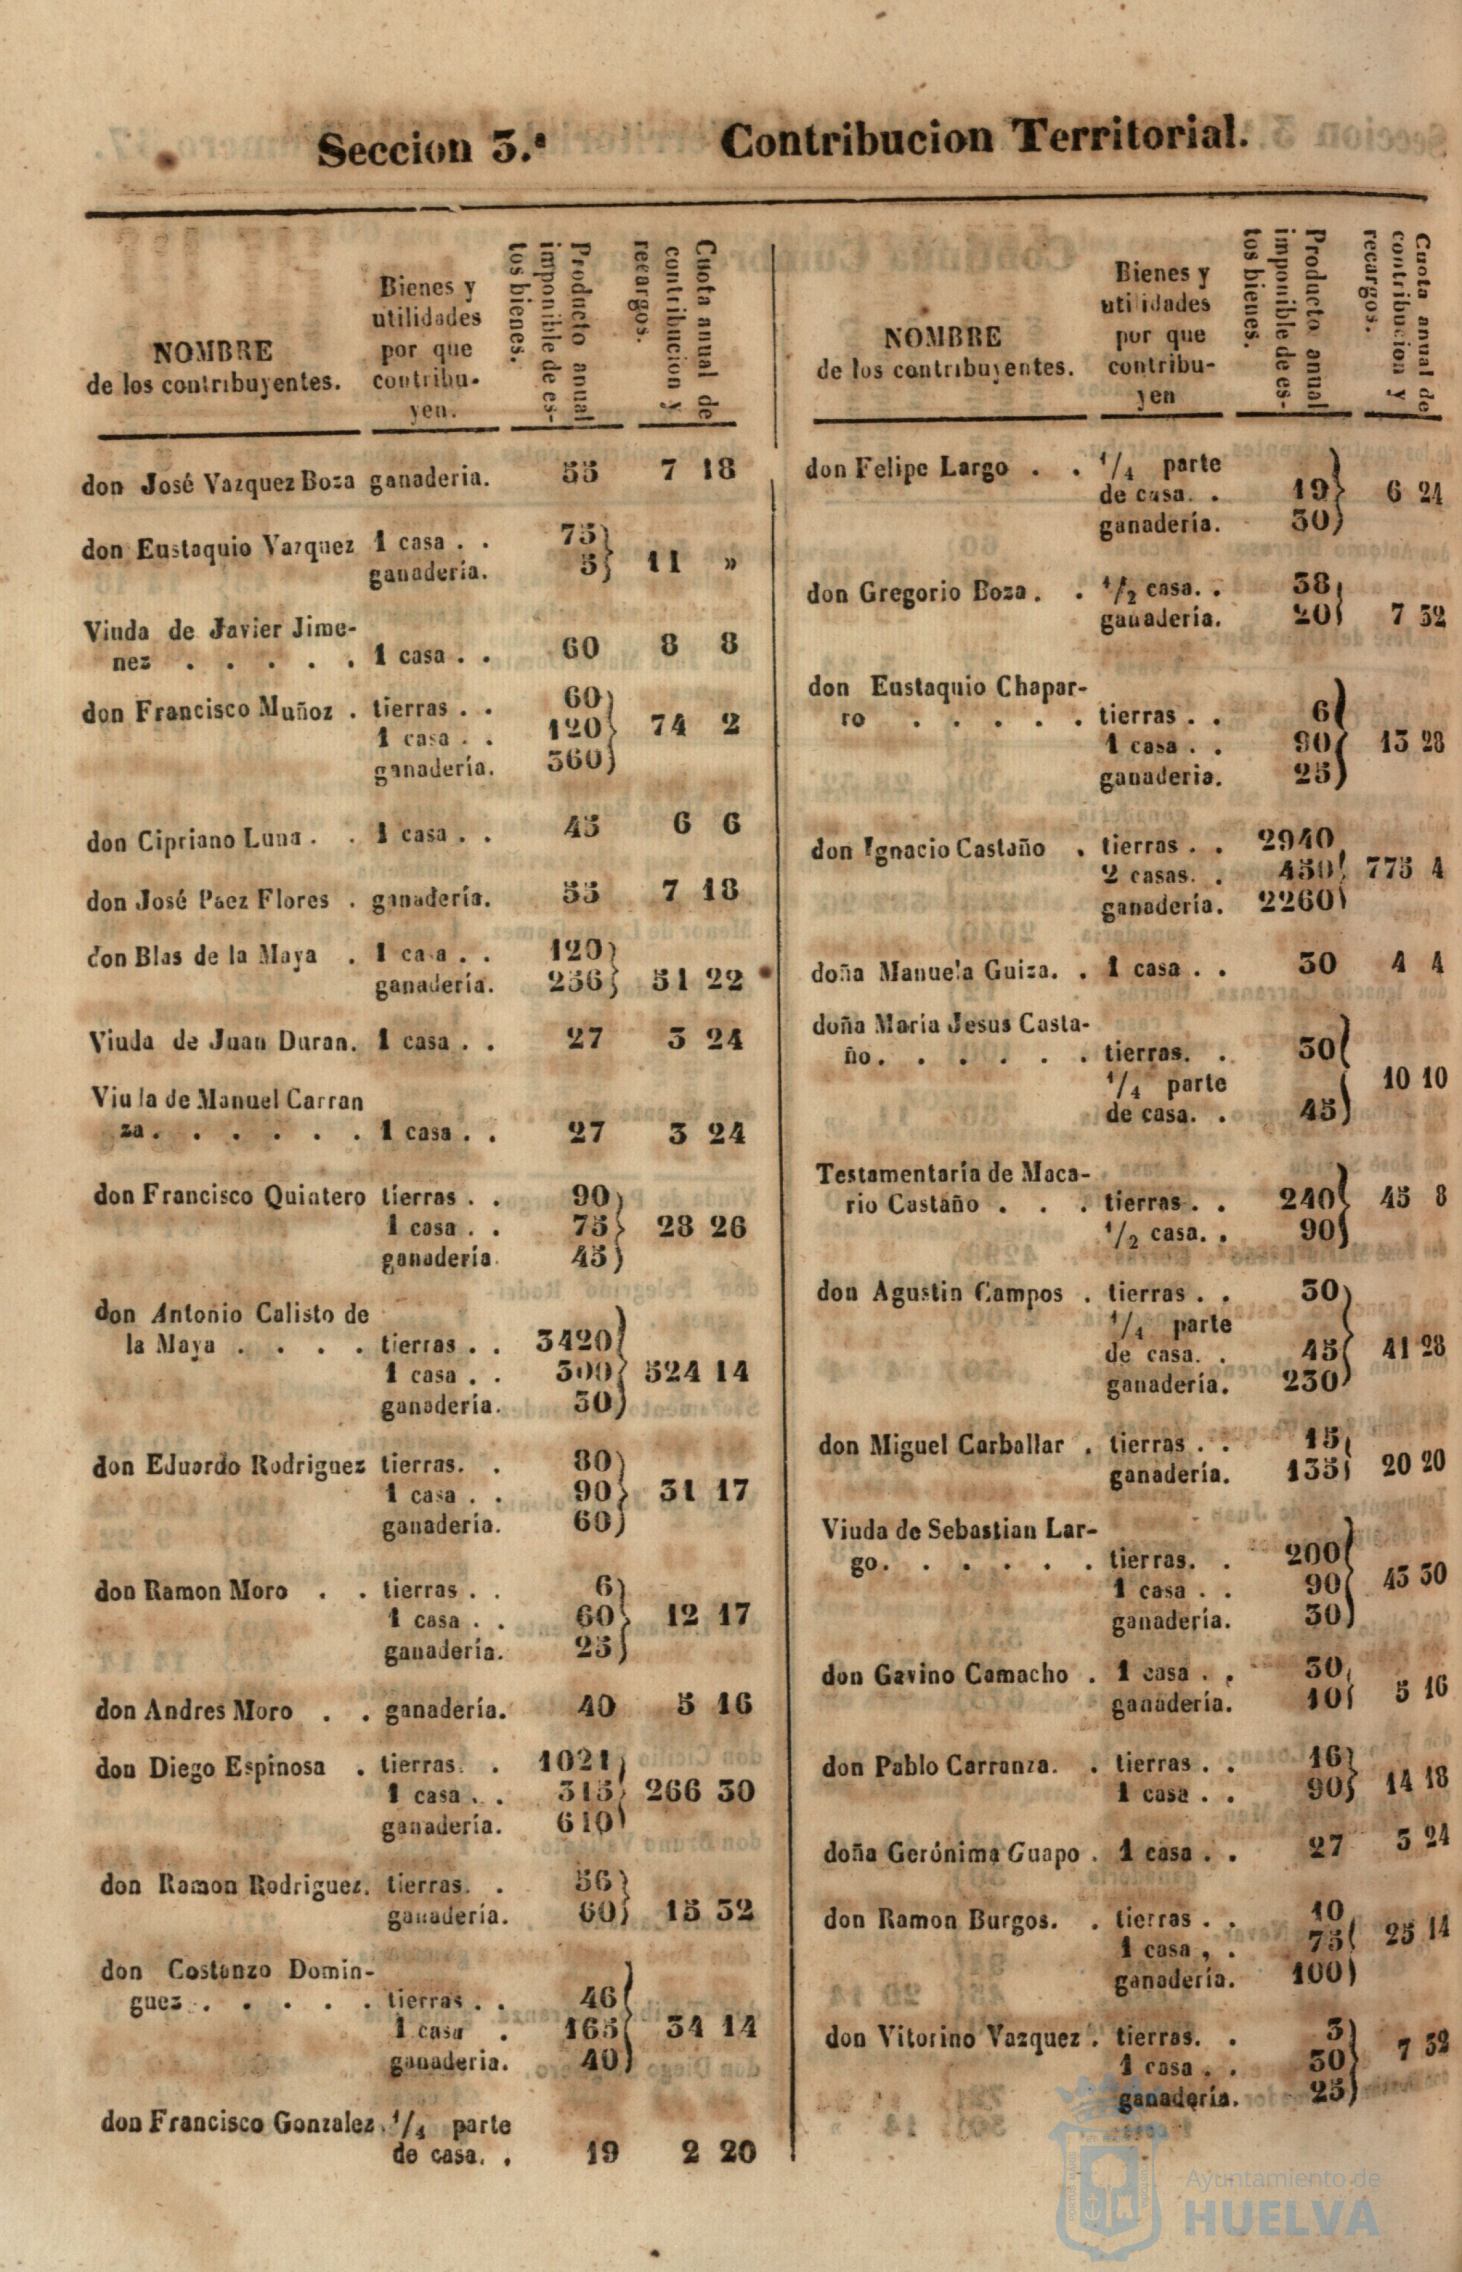 Seccion 3.ª Contribucion Territorial.
NOMBRE
de los contribuyentes.
Bienes y
utilidades
por que
contribu-
yen.
Producto anual
imponible de es-
tos bienes.
Cuota anual de
contribucion y
recargos.
don José Vazquez Boza ganaderia. 55 7 18
don Eustaquio Vazquez 1 casa . . 75
ganadería. 5 11 »
Viuda de Javier Jime-
nez . . . . . 1 casa . . 60 8 8
don Francisco Muñoz . tierras . . 60
1 casa . . 120 74 2
ganadería. 360
don Cipriano Luna . . 1 casa . . 45 6 6
don José Paez Flores . ganadería. 55 7 18
don Blas de la Maya . 1 casa . . 120
ganadería. 256 51 22
Viuda de Juan Duran. 1 casa . . 27 3 24
Viuda de Manuel Carran
za . . . . . . 1 casa . . 27 3 24
don Francisco Quintero tierras . . 90
1 casa . . 75 28 26
ganadería. 45
don Antonio Calisto de
la Maya . . . . tierras . . 3420
1 casa . . 300 524 14
ganadería. 30
don Eduardo Rodriguez tierras. . 80
1 casa . . 90 31 17
ganaderia. 60
don Ramon Moro . . tierras . . 6
1 casa . . 60 12 17
ganadería. 25
don Andres Moro . . ganadería. 40 5 16
don Diego Espinosa . tierras. . 1021
1 casa . . 315 266 30
ganadería. 610
don Ramon Rodriguez. tierras. . 56
ganadería. 60 15 32
don Costanzo Domin-
guez . . . . . tierras . . 46
1 casa . 165 34 14
ganaderia. 40
don Francisco Gonzalez. 1/4 parte
de casa. . 19 2 20
NOMBRE
de los contribuyentes.
Bienes y
utilidades
por que
contribu-
yen
Producto anual
imponible de es-
tos bienes.
Cuota anual de
contribucion y
recargos.
don Felipe Largo . . 1/4 parte
de casa. . 19 6 24
ganadería. 30
don Gregorio Boza . . 1/2 casa. . 38
ganadería. 20 7 32
don Eustaquio Chapar-
ro . . . . . tierras . . 6
1 casa . . 90 13 28
ganaderia. 25
don Ignacio Castaño . tierras . . 2940
2 casas. . 450 775 4
ganadería. 2260
doña Manuela Guiza. . 1 casa . . 30 4 4
doña Maria Jesus Casta-
ño . . . . . . tierras. . 30
1/4 parte 10 10
de casa. . 45
Testamentaría de Maca-
rio Castaño . . . tierras . . 240 45 8
1/2 casa. . 90
don Agustin Campos . tierras . . 30
1/4 parte
de casa. . 45 41 28
ganadería. 230
don Miguel Carballar . tierras . . 15
ganadería. 135 20 20
Viuda de Sebastian Lar-
go . . . . . . tierras. . 200
1 casa . . 90 43 30
ganadería. 30
don Gavino Camacho . 1 casa . . 30
ganadería. 10 5 16
don Pablo Carranza. . tierras . . 16
1 casa . . 90 14 18
doña Gerónima Guapo . 1 casa . . 27 3 24
don Ramon Burgos. . tierras . . 10
1 casa , . 75 25 14
ganadería. 100
don Vitorino Vazquez . tierras. . 3
1 casa . . 30 7 32
ganadería. 25
Ayuntamiento de
HUELVA